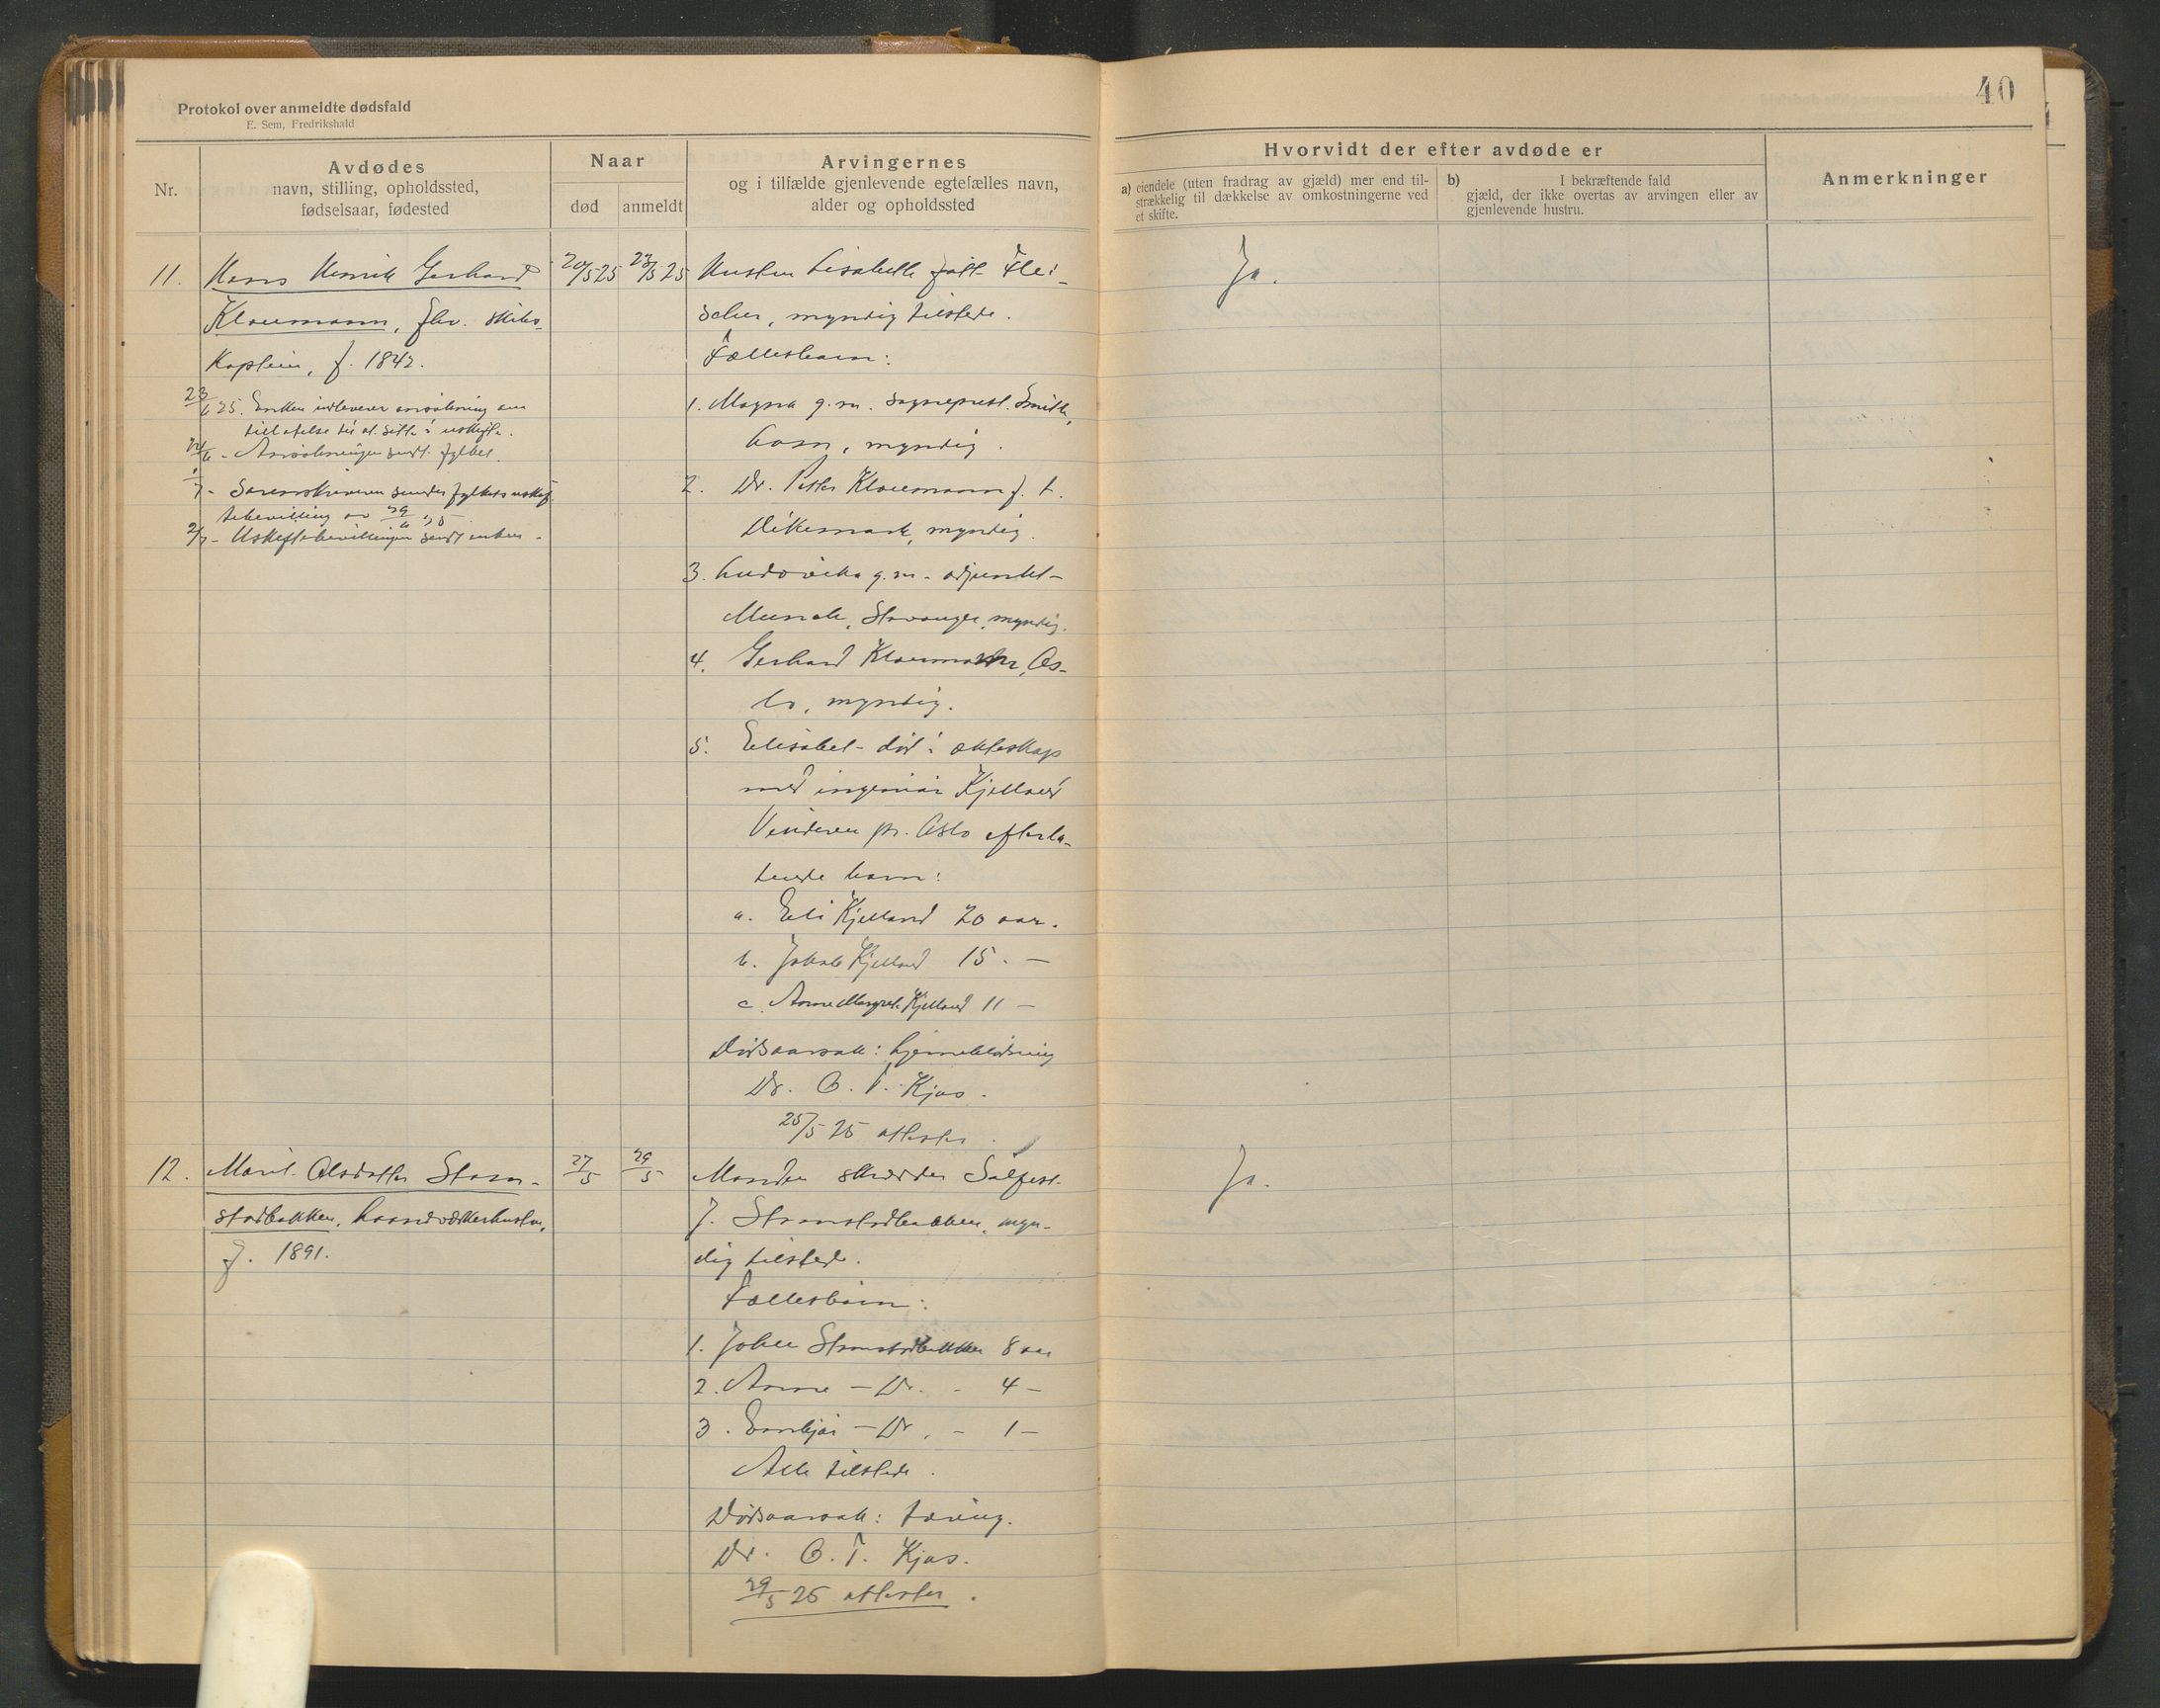 40
Protokol over anmeldte dødsfald
E. Sem, Fredrikshald
Nr.
Avdødes
navn, stilling, opholdssted,
fødselsaar, fødested
Naar
død
anmeldt
Arvingernes
og i tilfælde gjenlevende egtefælles navn,
alder og opholdssted
Hvorvidt der efter avdøde er
a) eiendele (uten fradrag av gjæld) mer end til-
strækkelig til dækkelse av omkostningerne ved
et skifte.
b) I bekræftende fald
gjæld, der ikke overtas av arvingen eller av
gjenlevende hustru.
Anmerkninger
11.
Hans Henrik Gerhard
Klouman, fhv. skibs
Kaptein, f. 1842.
23/6 25. Enken indleverer ansøkning om
tillatelse til at sitte i uskifte.
24/6 - Ansøkningen sendt fylket.
1/7 - Sorenskriveren sender fylkets uskif-
tebevilling av 29/6 25
2/7 - Uskiftebevillingen sendt enken -
20/5 25
23/5 25
Hustru Lisabeth født Flei-
scher, myndig tilstede.
Fællesbarn:
1. Magna g. m. sogneprest Smith,
myndig.
2. Dr. Peter Kloumann f. t.
Dikemark, myndig.
3. Ludovika g. m. adjunkt
Munch, Stavanger, myndig.
4. Gerhard Kloumann, Os-
lo, myndig.
5. Elisabet død i ækteskap
med ingeniør Kjelland
Vinderen pr. Oslo efterla-
tende barn:
a. Eli Kjelland 20 aar.
b. Jakob Kjelland 15 -
c. Anne Margrete Kjelland 11 -
Dødsaarsak: hjerneblødning
Dr. O. T. Kjos.
25/5 25 attester.
Ja.
12.
Marit Olsdatter Stam-
stadbakken, haandværkerhustru,
f. 1891.
27/5
29/5
Manden skrædder Salfest
J. Stamstadbakken, myn-
dig tilstede.
Fællesbarn:
1. Johan Stamstadbakken 8 aar
2. Anna - Do. - 4 -
3. Embjør - Do. - 1 -
Alle tilstede.
Dødsaarsak: tæring.
Dr. O. T. Kjos.
29/5 25 attester.
Ja.